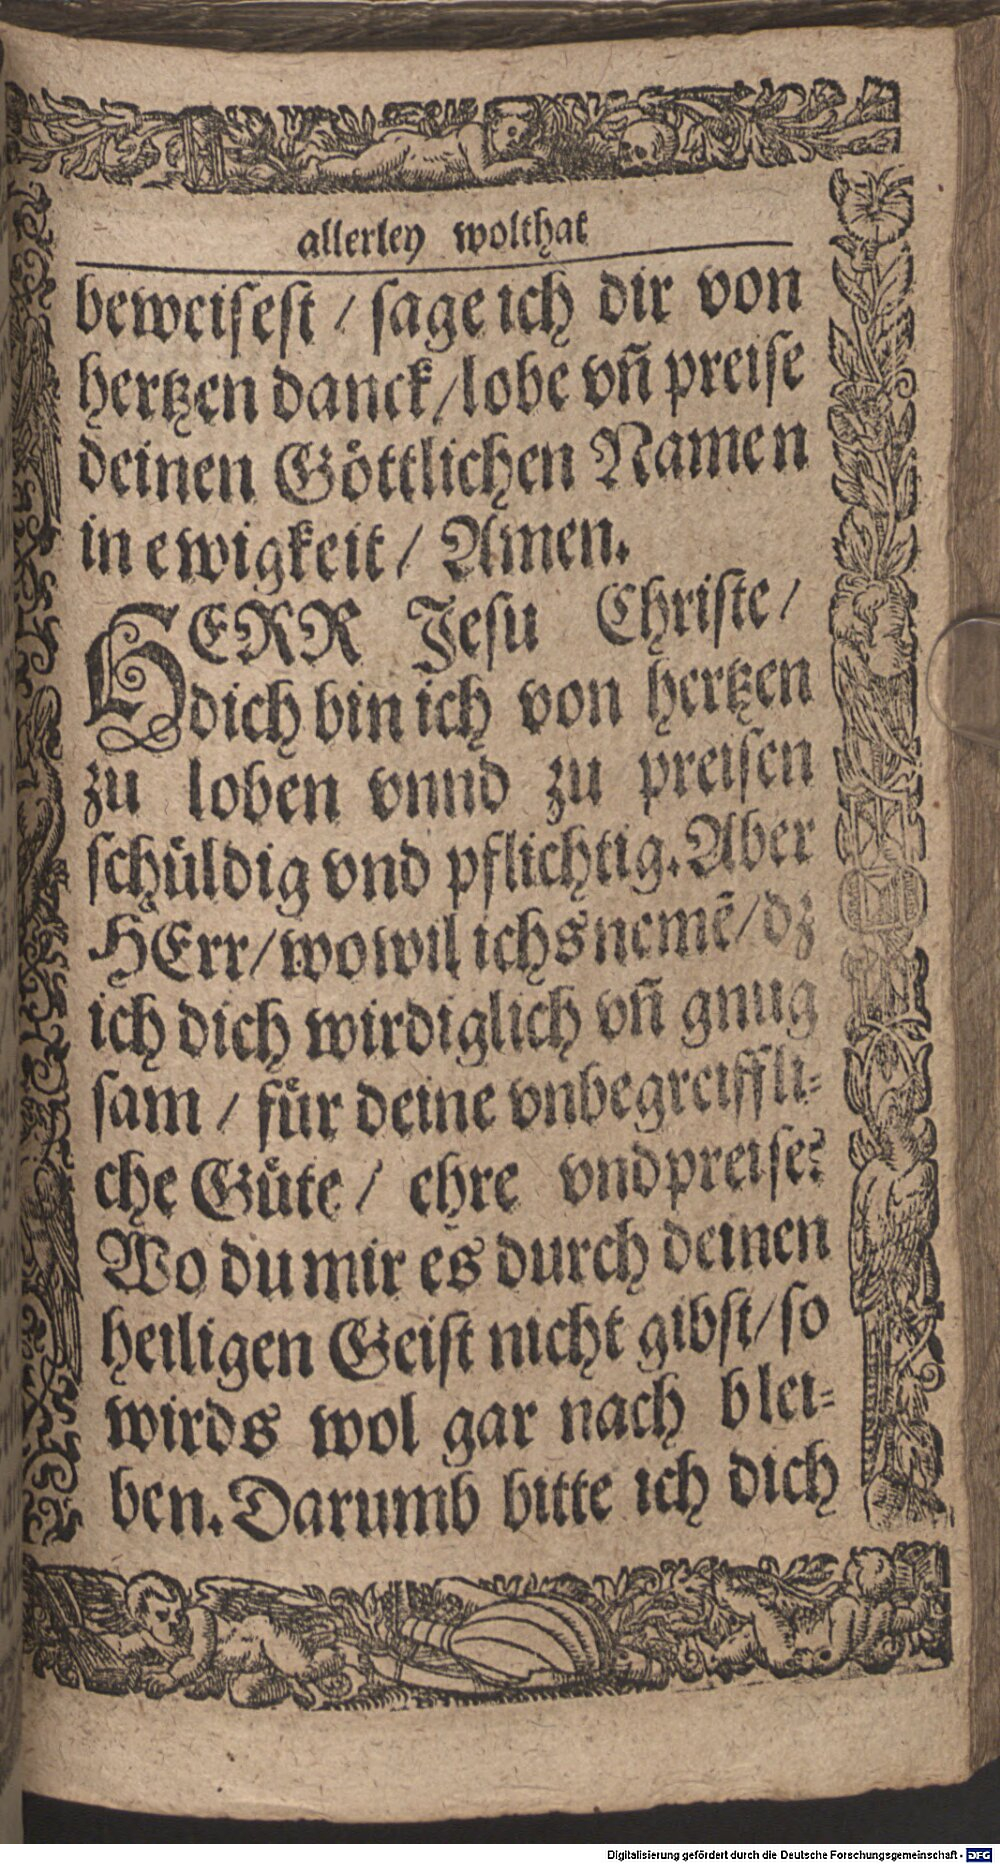 allerley wolthat
beweisest / sage ich dir von
hertzen danck / lobe vn̄ preise
deinen Göttlichen Namen
in ewigkeit / Amen.
HERR Jesu Christe /
dich bin ich von hertzen
zu loben vnnd zu preisen
schüldig vnd pflichtig. Aber
HErr / wo wil ichs nemē / dz
ich dich wirdiglich vn̄ gnug
sam / für deine vnbegreiffli-
che Güte / ehre vnd preise?
Wo du mir es durch deinen
heiligen Geist nicht gibst / so
wirds wol gar nach blei-
ben. Darumb bitte ich dich
Digitalisierung gefördert durch die Deutsche Forschungsgemeinschaft - DFG